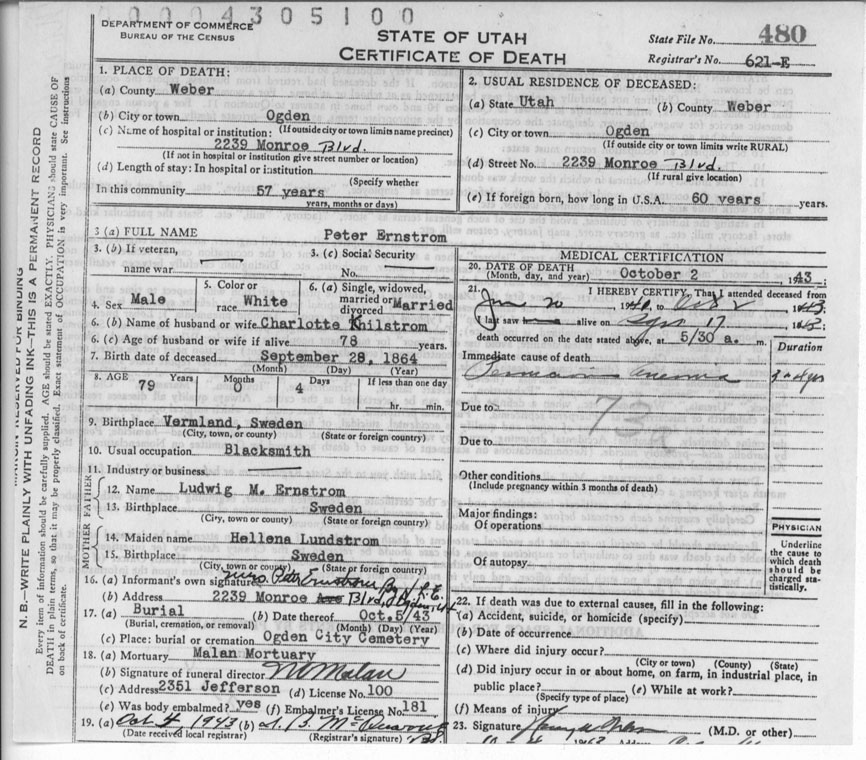 0 0 0 0 4 3 0 5 1 0 0
DEPARTMENT OF COMMERCE
BUREAU OF THE CENSUS
STATE OF UTAH
CERTIFICATE OF DEATH
State File No. 480
Registrar's No. 621-E
N. B.—WRITE PLAINLY WITH UNFADING INK—THIS IS A PERMANENT RECORD
Every item of information should be carefully supplied. AGE should be stated EXACTLY. PHYSICIANS should state CAUSE OF
DEATH in plain terms, so that it may be properly classified. Exact statement of OCCUPATION is very important. See instructions
on back of certificate.
1. PLACE OF DEATH:
(a) County Weber
(b) City or town Ogden
(If outside city or town limits name precinct)
(c) Name of hospital or institution:
2239 Monroe Blvd.
(If not in hospital or institution give street number or location)
(d) Length of stay: In hospital or institution
(Specify whether
In this community 57 years
years, months or days)
2. USUAL RESIDENCE OF DECEASED:
(a) State Utah (b) County Weber
(c) City or town Ogden
(If outside city or town limits write RURAL)
(d) Street No. 2239 Monroe Blvd.
(If rural give location)
(e) If foreign born, how long in U.S.A. 60 years years.
3 (a) FULL NAME Peter Ernstrom
3. (b) If veteran,
name war
3. (c) Social Security
No.
4. Sex Male
5. Color or
race White
6. (a) Single, widowed,
married or
divorced Married
6. (b) Name of husband or wife Charlotte Khilstrom
6. (c) Age of husband or wife if alive 78 years.
7. Birth date of deceased September 28, 1864
(Month) (Day) (Year)
8. AGE 79 Years 0 Months 4 Days If less than one day
hr. min.
9. Birthplace Vermland, Sweden
(City, town, or county) (State or foreign country)
10. Usual occupation Blacksmith
11. Industry or business
FATHER
12. Name Ludwig M. Ernstrom
13. Birthplace Sweden
(City, town or county) (State or foreign country)
MOTHER
14. Maiden name Hellena Lundstrom
15. Birthplace Sweden
(City, town or county) (State or foreign country)
16. (a) Informant's own signature Mrs. Peter Ernstrom By
(b) Address 2239 Monroe Blvd, Ogden, Ut
17. (a) Burial (b) Date thereof Oct. 5/43
(Burial, cremation, or removal) (Month) (Day) (Year)
(c) Place: burial or cremation Ogden City Cemetery
18. (a) Mortuary Malan Mortuary
(b) Signature of funeral director Malan
(c) Address 2351 Jefferson (d) License No. 100
(e) Was body embalmed? yes (f) Embalmer's License No. 181
19. (a) Oct 4 1943 (b)
(Date received local registrar) (Registrar's signature)
MEDICAL CERTIFICATION
20. DATE OF DEATH
(Month, day, and year) October 2, 1943.
21. I HEREBY CERTIFY, That I attended deceased from
Jan 20 1940, to Oct 2, 1943
I last saw alive on Sept 17, 1943;
death occurred on the date stated above, at 5/30 a. m.
Duration
Immediate cause of death
Pernicious Anemia 3 or 4 yrs
Due to
73a
Due to
Other conditions
(Include pregnancy within 3 months of death)
Major findings:
Of operations
Of autopsy
PHYSICIAN
Underline
the cause to
which death
should be
charged sta-
tistically.
22. If death was due to external causes, fill in the following:
(a) Accident, suicide, or homicide (specify)
(b) Date of occurrence
(c) Where did injury occur?
(City or town) (County) (State)
(d) Did injury occur in or about home, on farm, in industrial place, in
public place? (e) While at work?
(Specify type of place)
(f) Means of injury
23. Signature (M.D. or other)